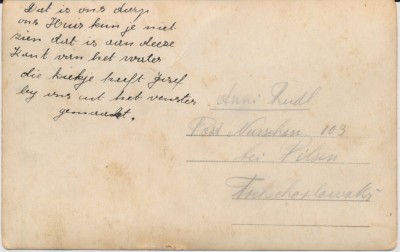 Dat is ons dorp
ons Huis kun je niet
zien dat is aan deeze
Kant van het water
die kiekje heeft Jozef
by ons uit het venster
gemaakt.
Anni Riedl
Post Nürschan 103
bei Pilsen
Tschechoslowakÿ